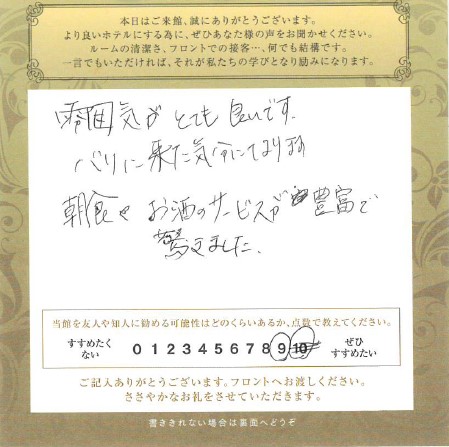 本日はご来館、誠にありがとうございます。
より良いホテルにする為に、ぜひあなた様の声をお聞かせください。
ルームの清潔さ、フロントでの接客…、何でも結構です。
一言でもいただければ、それが私たちの学びとなり励みになります。
雰囲気がとても良いです。
バリに来た気分になります
朝食や お酒のサービスが豊富で
驚きました。
当館を友人や知人に勧める可能性はどのくらいあるか、点数で教えてください。
すすめたくない 0 1 2 3 4 5 6 7 8 9 10 ぜひすすめたい
ご記入ありがとうございます。フロントへお渡しください。
ささやかなお礼をさせていただきます。
書ききれない場合は裏面へどうぞ